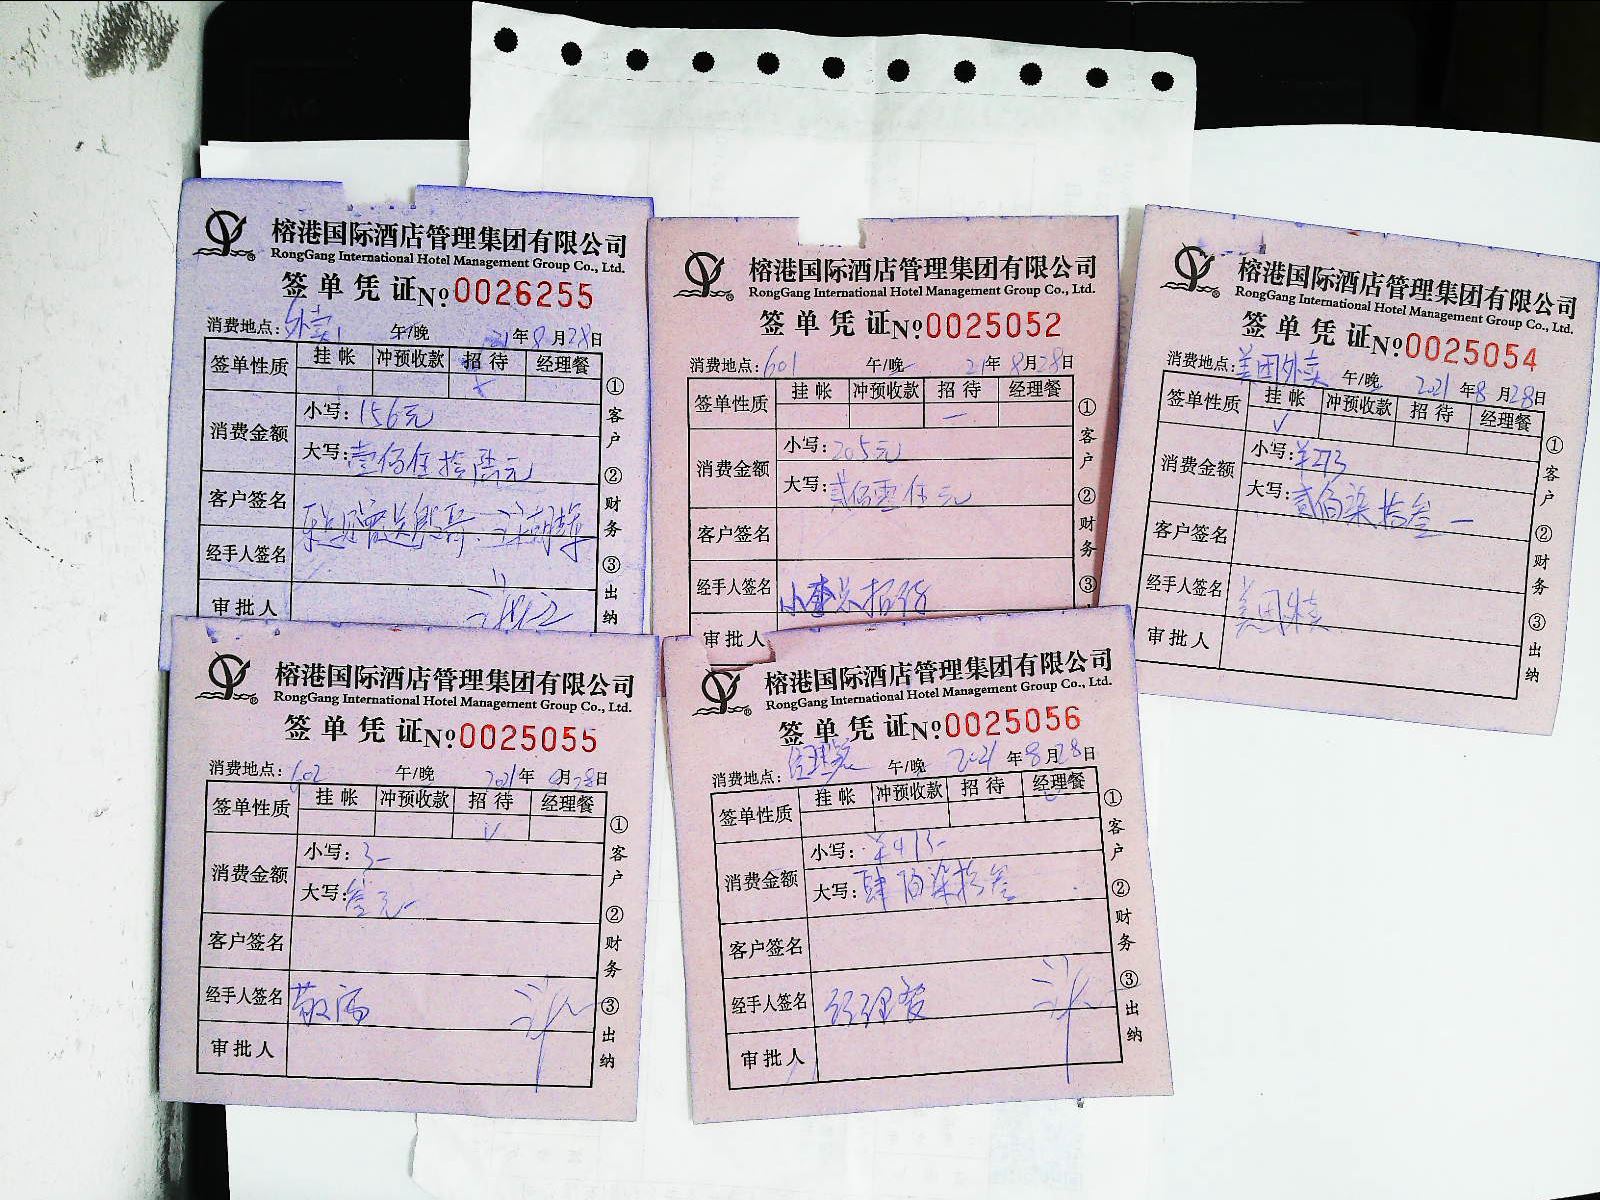 榕港国际酒店管理集团有限公司
RongGang International Hotel Management Group Co., Ltd.
签单凭证 № 0026255
消费地点：外卖 午/晚 21年8月28日
签单性质 挂帐 冲预收款 招待 经理餐
消费金额 小写：156元
大写：壹佰伍拾陆元
客户签名
经手人签名
审批人
①客户 ②财务 ③出纳
榕港国际酒店管理集团有限公司
RongGang International Hotel Management Group Co., Ltd.
签单凭证 № 0025052
消费地点：601 午/晚 21年8月28日
签单性质 挂帐 冲预收款 招待 经理餐
消费金额 小写：205元
大写：贰佰零伍元
客户签名
经手人签名 小李总招待
审批人
①客户 ②财务 ③
榕港国际酒店管理集团有限公司
RongGang International Hotel Management Group Co., Ltd.
签单凭证 № 0025054
消费地点：美团外卖 午/晚 2021年8月28日
签单性质 挂帐 冲预收款 招待 经理餐
✓
消费金额 小写：¥273
大写：贰佰柒拾叁
客户签名
经手人签名 美团外卖
审批人
①客户 ②财务 ③出纳
榕港国际酒店管理集团有限公司
RongGang International Hotel Management Group Co., Ltd.
签单凭证 № 0025055
消费地点：602 午/晚 2021年8月28日
签单性质 挂帐 冲预收款 招待 经理餐
✓
消费金额 小写：3-
大写：叁元
客户签名
经手人签名 敬酒
审批人
①客户 ②财务 ③出纳
榕港国际酒店管理集团有限公司
RongGang International Hotel Management Group Co., Ltd.
签单凭证 № 0025056
消费地点： 午/晚 2021年8月28日
签单性质 挂帐 冲预收款 招待 经理餐
消费金额 小写：¥473-
大写：肆佰柒拾叁
客户签名
经手人签名 经理餐
审批人
①客户 ②财务 ③出纳